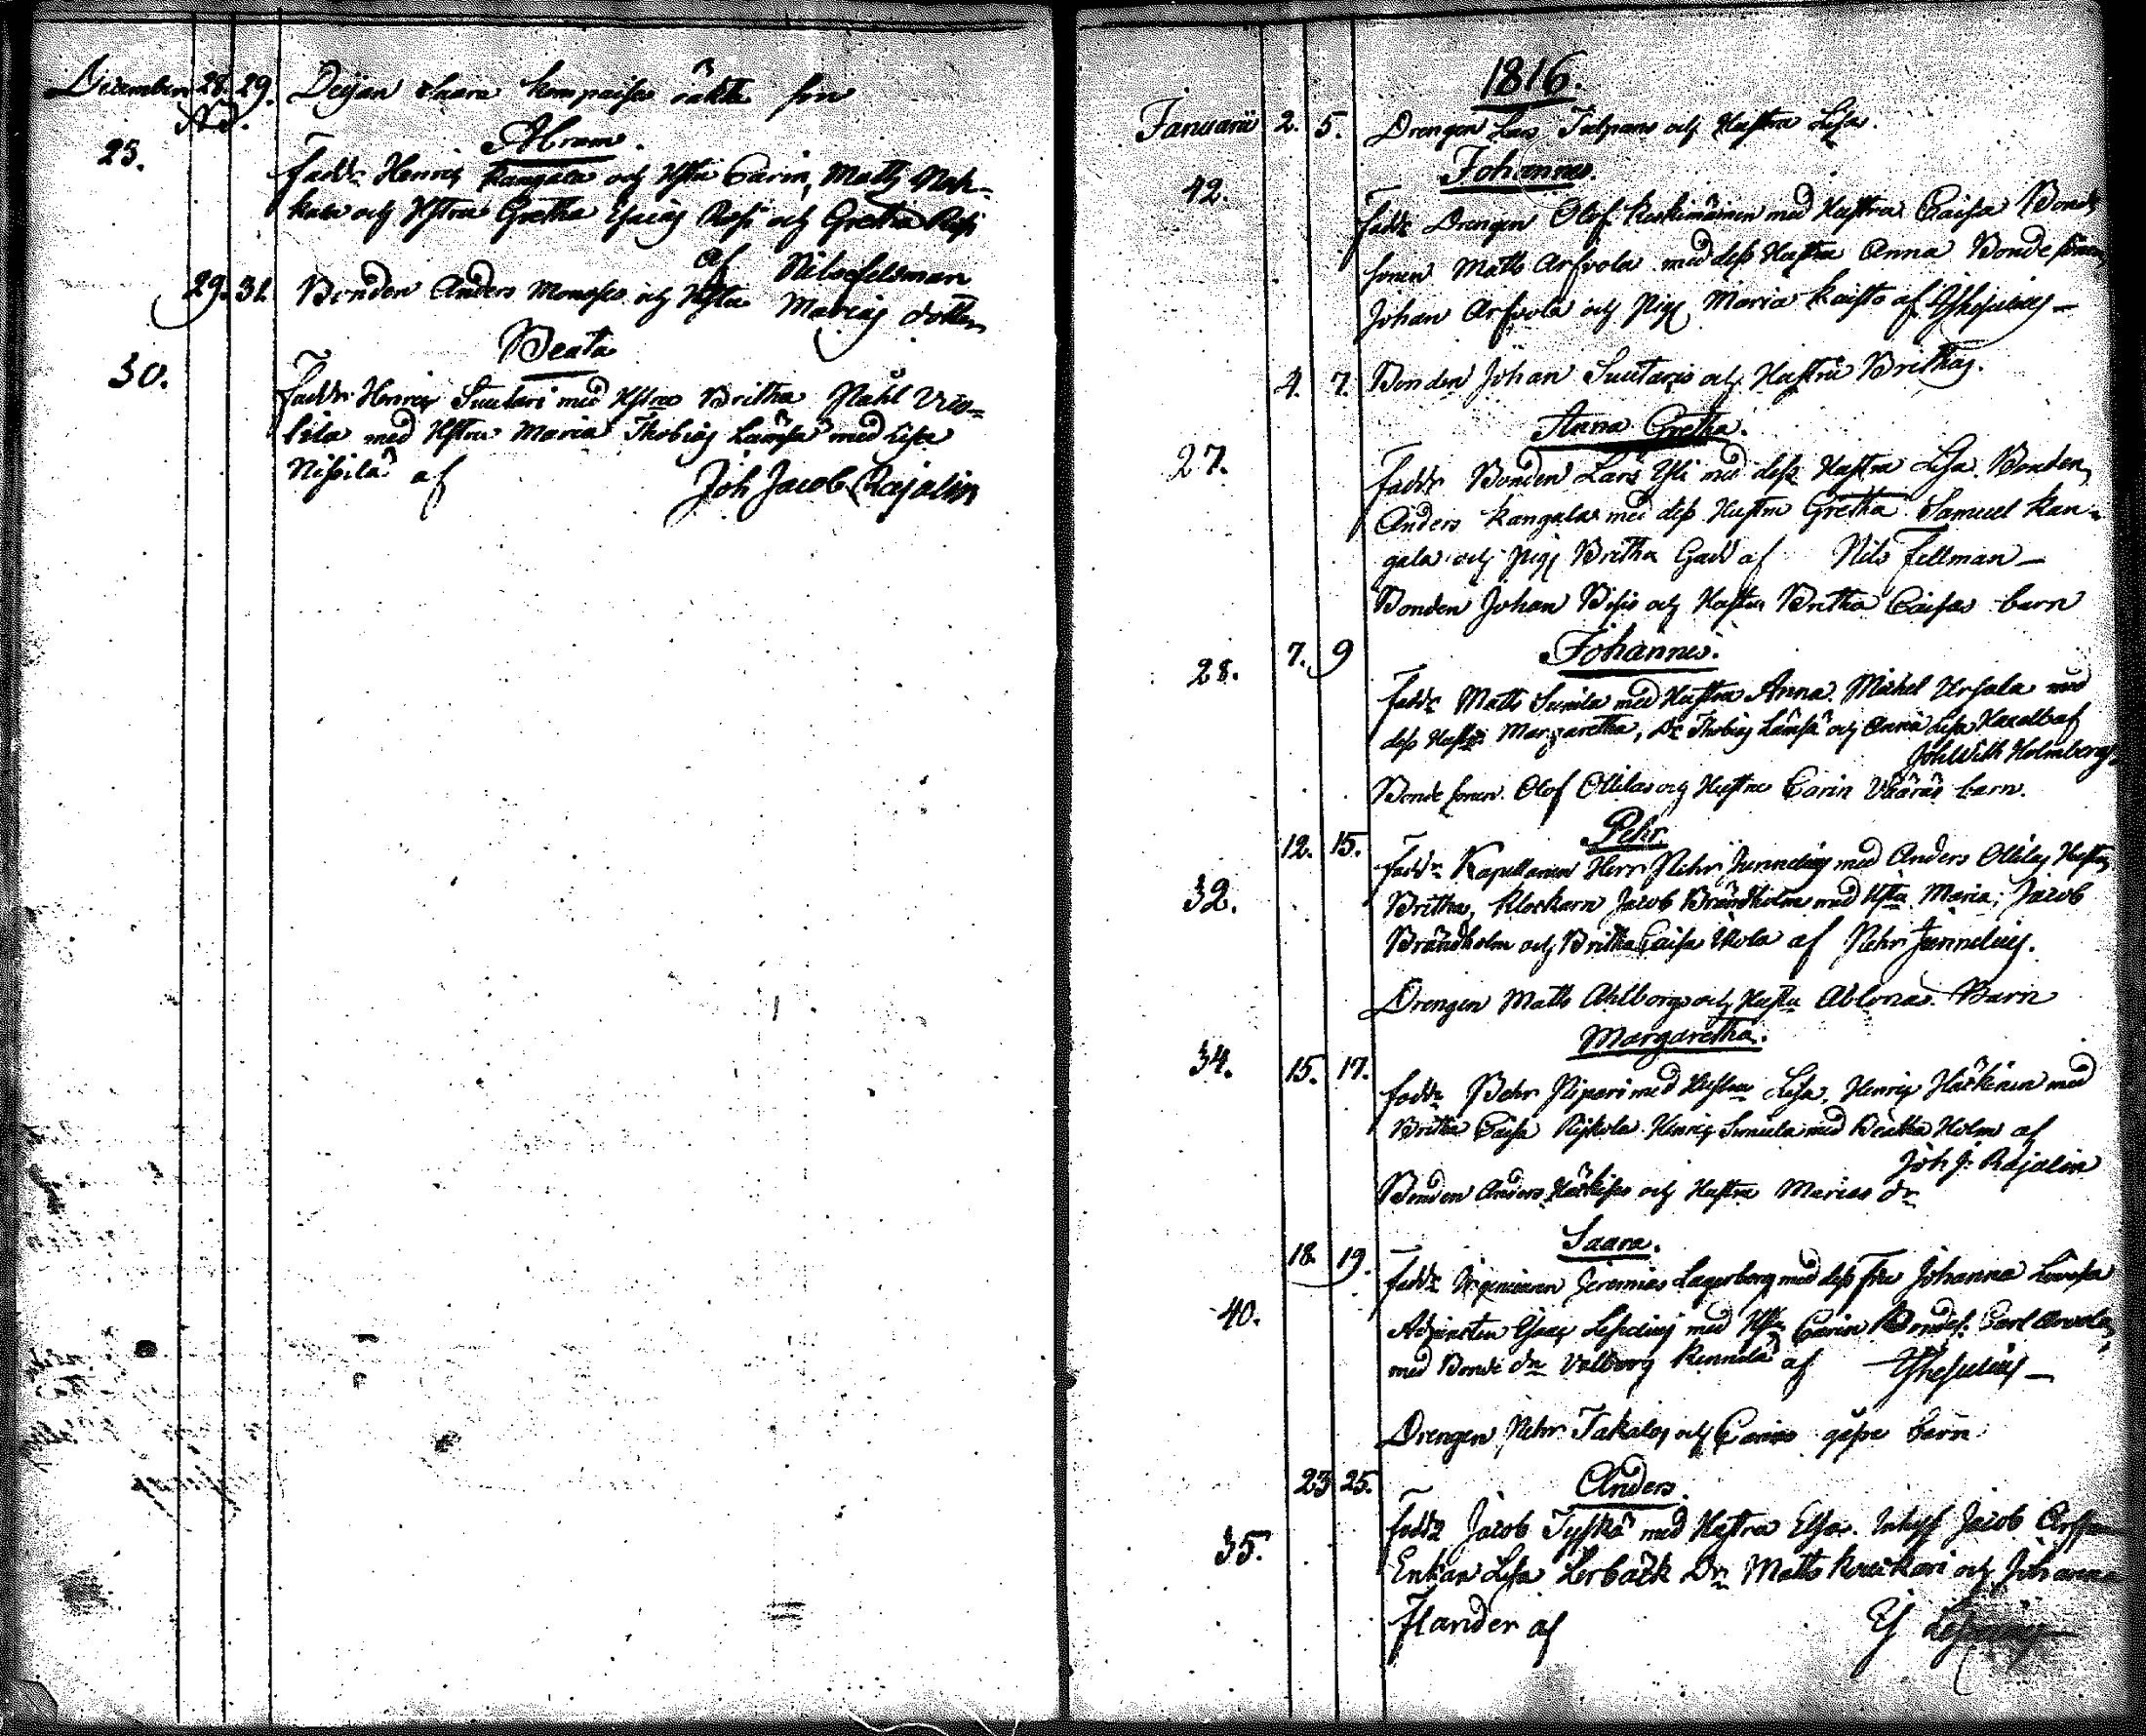 December 28. 29. Deijan Saara Kompaises oäkta son
Nd.
25. Abram.
Faddr Henric Kangala och Hstru Carin, Matts
kala och Hstru Gretha Esaias Rosi och Gretha Rosi
af Nils Fellman
29. 31. Bonden Anders Monoses och Hstru Marias dotter
Beata
30.
Faddr Henric Suutari med Hstru Britha Påhl
lila med Hstru Maria Thobias Lämsä med Lisa
Nissilä af Joh Jacob Rajalin
1816.
Januarii 2. 5. Drengen Lars Tulpans och Hustru Lisas.
Johannes.
42.
Faddr Drengen Olof Koskimäinen med Hustru Caisa Bonde
sonen Matts Arfvola med dess Hustru Anna Bondesonen
Johan Arfvola och Pig Maria Kaisto af
4. 7. Bonden Johan Suutaris och Hustru Brithas.
Anna Gretha.
27.
Faddr Bonden Lars Yli med dess Hustru Lisa. Bonden
Anders Kangala med dess Hustru Gretha Samuel Kan-
gala och pig Britha Gadd af Nils Fellman
Bonden Johan och Hustru Britha Caisas barn
28. 7. 9 Johannes.
Faddr Matts Simila med Hustru Anna. Michel Ursala med
dess Hustru Margaretha, Dr Thobias Lämsä och Anna Lisa af
Joh Wilh Holmberg
Bonde sonen Olof Ollilas och Hustru Carin barn.
12. 15. Pehr.
Faddr Kapellanen Herr Pehr Junnelius med Anders Ollilas Hustru
32. Britha, Klockarn Jacob Brändholm med Hstru Maria, Jacob
Brändholm och Britha Caisa af Pehr Junnelius.
Drengen Matts Ahlborgs och Hustru Ablonas Barn
Margaretha.
34. 15. 17.
Faddr Pehr Piipari med Hustru Lisa, Henric Häckinen med
Britha Caisa Henric Simula med Beatha Holm af
Joh J. Rajalin
Bonden Anders och Hustru Marias dr
Saara.
18. 19.
Faddr Ingenieuren Jeremias Lagerborg med dess Fru Johanna Lovisa
40. Adjuncten Esaias med Hstru Carin Bondes. Carl Arvola
med Bonde dr Valborg af
Drengen Pehr Takalos och Carins barn
23 25. Anders
Faddr Jacob Tyskä med Hustru Elsa. Inhys Jacob
35. Enkan Lisa Lerbäck Dr Matts Kuukari och Johanna
Flander af